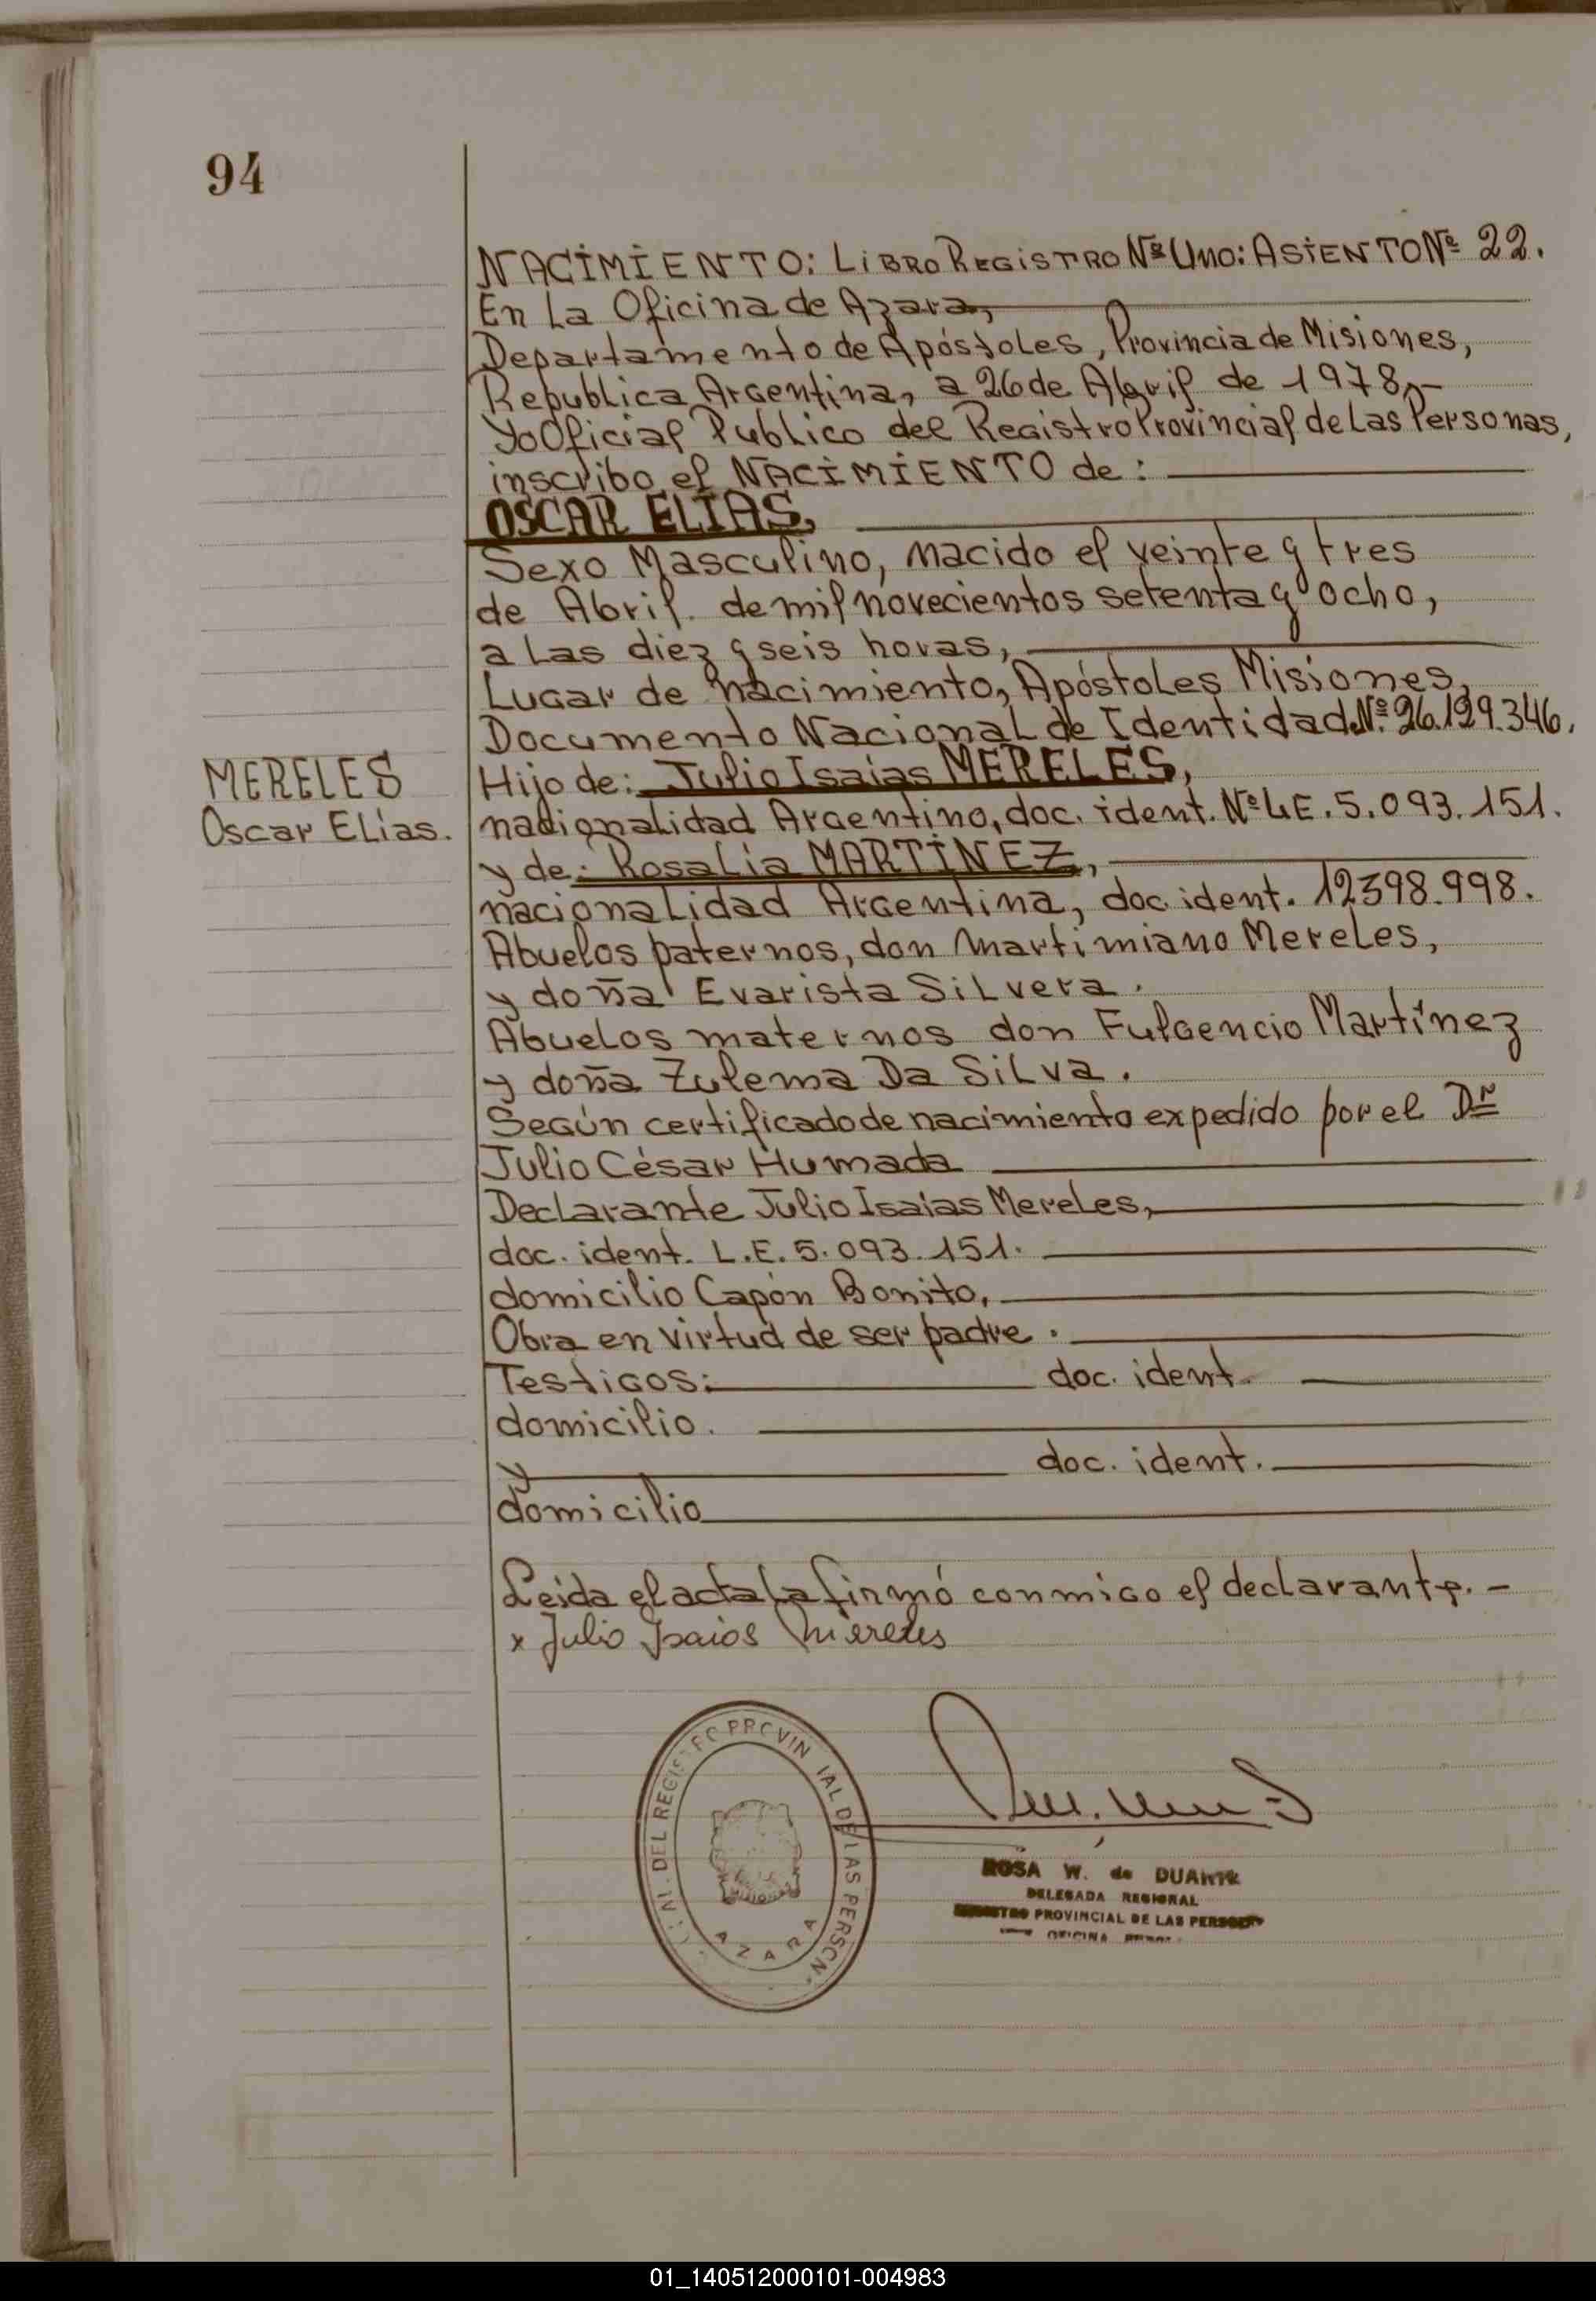 94
NACIMIENTO: LIBRO REGISTRO Nº UNO: ASIENTO Nº 22.
En La Oficina de Azara,
Departamento de Apóstoles, Provincia de Misiones,
Republica Argentina, a 26 de Abril de 1978,-
Yo Oficial Publico del Registro Provincial de Las Personas,
inscribo el NACIMIENTO de:
OSCAR ELIAS,
Sexo Masculino, nacido el veinte y tres
de Abril. de mil novecientos setenta y ocho,
a Las diez y seis horas,
Lugar de nacimiento, Apóstoles Misiones,
Documento Nacional de Identidad Nº 26.129.346.
MERELES
Oscar ELías.
Hijo de: Julio Isaías MERELES,
nacionalidad Argentino, doc. ident. Nº L.E. 5.093.151.
y de: Rosalía MARTINEZ,
nacionalidad Argentina, doc. ident. 12398.998.
Abuelos paternos, don Martimiano Mereles,
y doña Evarista Silvera.
Abuelos maternos don Fulgencio Martínez
y doña Zulema Da Silva.
Según certificado de nacimiento expedido por el Dr
Julio César Humada
Declarante Julio Isaías Mereles,
doc. ident. L.E. 5.093.151.
domicilio Capón Bonito,
Obra en virtud de ser padre.
Testigos: doc. ident.
domicilio.
y doc. ident.
domicilio
Leída el acta la firmó conmigo el declarante. -
x Julio Isaios Mereles
DEL REGISTRO PROVINCIAL DE LAS PERSON
AZARA
ROSA W. de DUARTE
DELEGADA REGIONAL
REGISTRO PROVINCIAL DE LAS PERSONAS
OFICINA
01_140512000101-004983